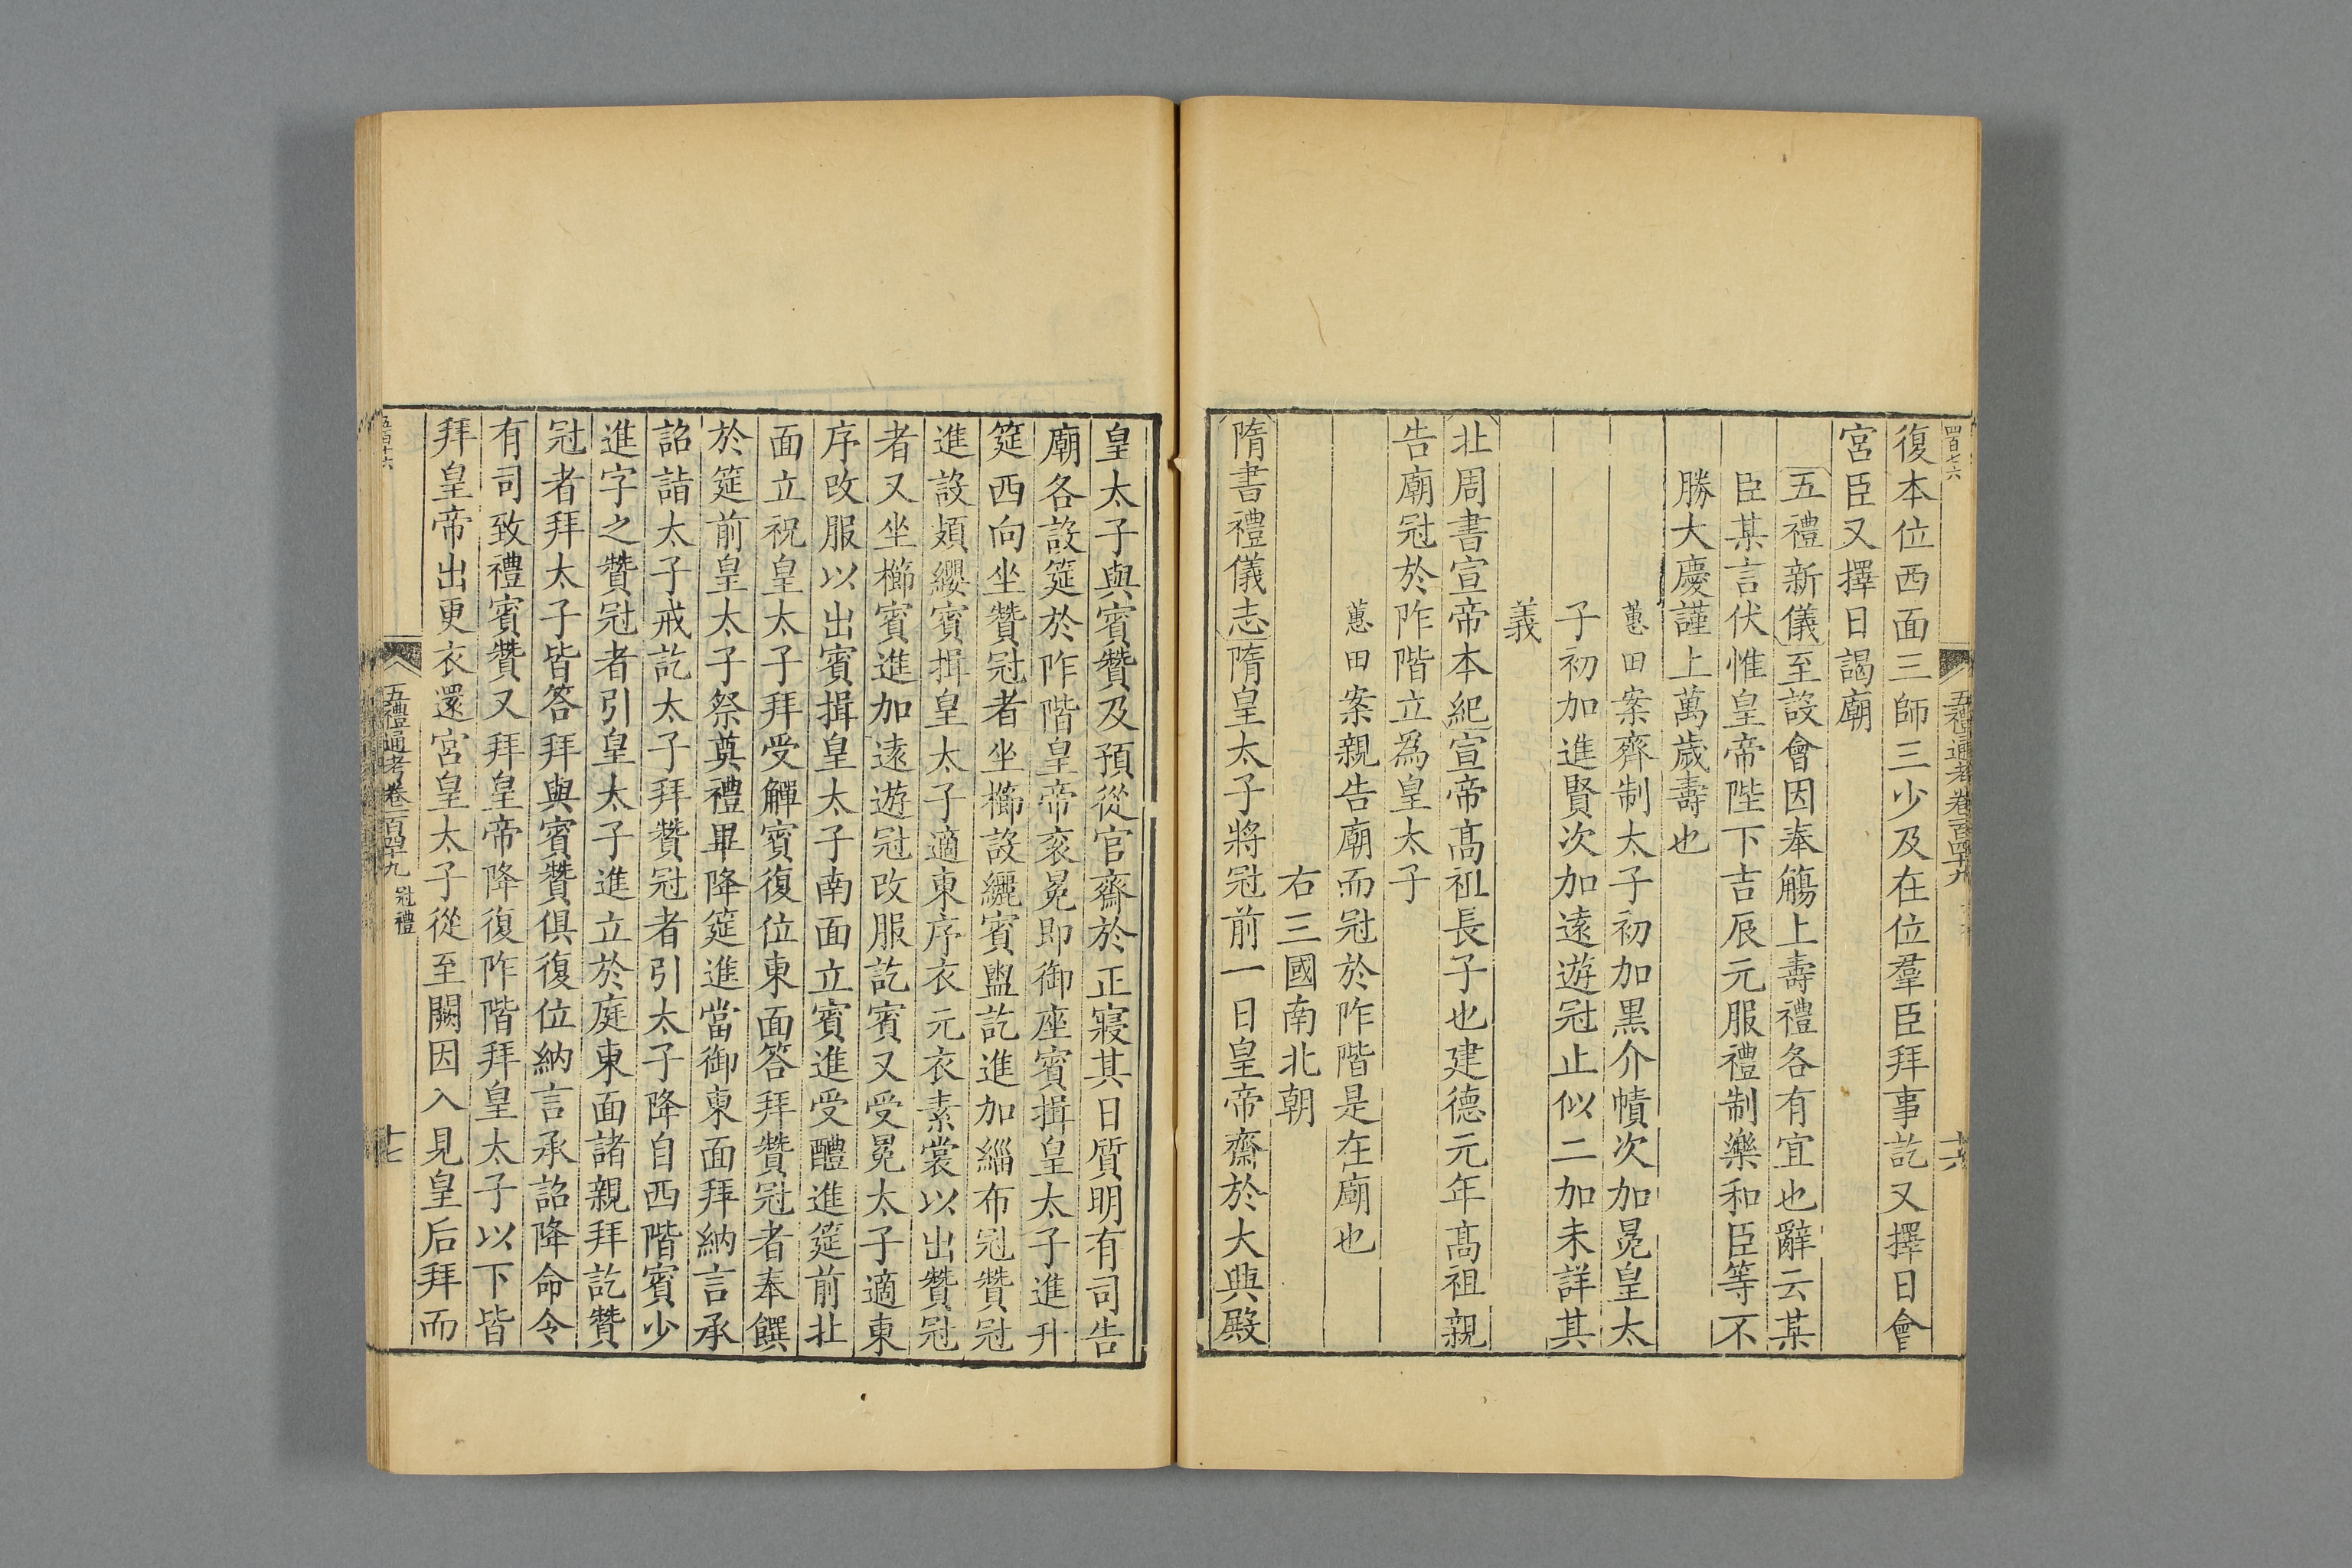 四百七六
五禮通考卷一百四十九
十六
復本位西面三師三少及在位羣臣拜事訖又擇日會
宮臣又擇日謁廟
五禮新儀至設會因奉觴上壽禮各有宜也辭云某
臣某言伏惟皇帝陛下吉辰元服禮制樂和臣等不
勝大慶謹上萬歲壽也
蕙田案齊制太子初加黑介幘次加冕皇太
子初加進賢次加遠遊冠止似二加未詳其
義
北周書宣帝本紀宣帝高祖長子也建德元年高祖親
告廟冠於阼階立爲皇太子
蕙田案親告廟而冠於阼階是在廟也
右三國南北朝
隋書禮儀志隋皇太子將冠前一日皇帝齋於大興殿
皇太子與賓贊及預從官齋於正寢其日質明有司告
廟各設筵於阼階皇帝衮冕即御座賓揖皇太子進升
筵西向坐贊冠者坐櫛設纚賓盥訖進加緇布冠贊冠
進設頍纓賓揖皇太子適東序衣元衣素裳以出贊冠
者又坐櫛賓進加遠遊冠改服訖賓又受冕太子適東
序改服以出賓揖皇太子南面立賓進受醴進筵前北
面立祝皇太子拜受觶賓復位東面答拜贊冠者奉饌
於筵前皇太子祭奠禮畢降筵進當御東面拜納言承
詔詣太子戒訖太子拜贊冠者引太子降自西階賓少
進字之贊冠者引皇太子進立於庭東面諸親拜訖贊
冠者拜太子皆答拜與賓贊俱復位納言承詔降命令
有司致禮賓贊又拜皇帝降復阼階拜皇太子以下皆
拜皇帝出更衣還宮皇太子從至闕因入見皇后拜而
五百十六
五禮通考卷一百四十九 冠禮
十七